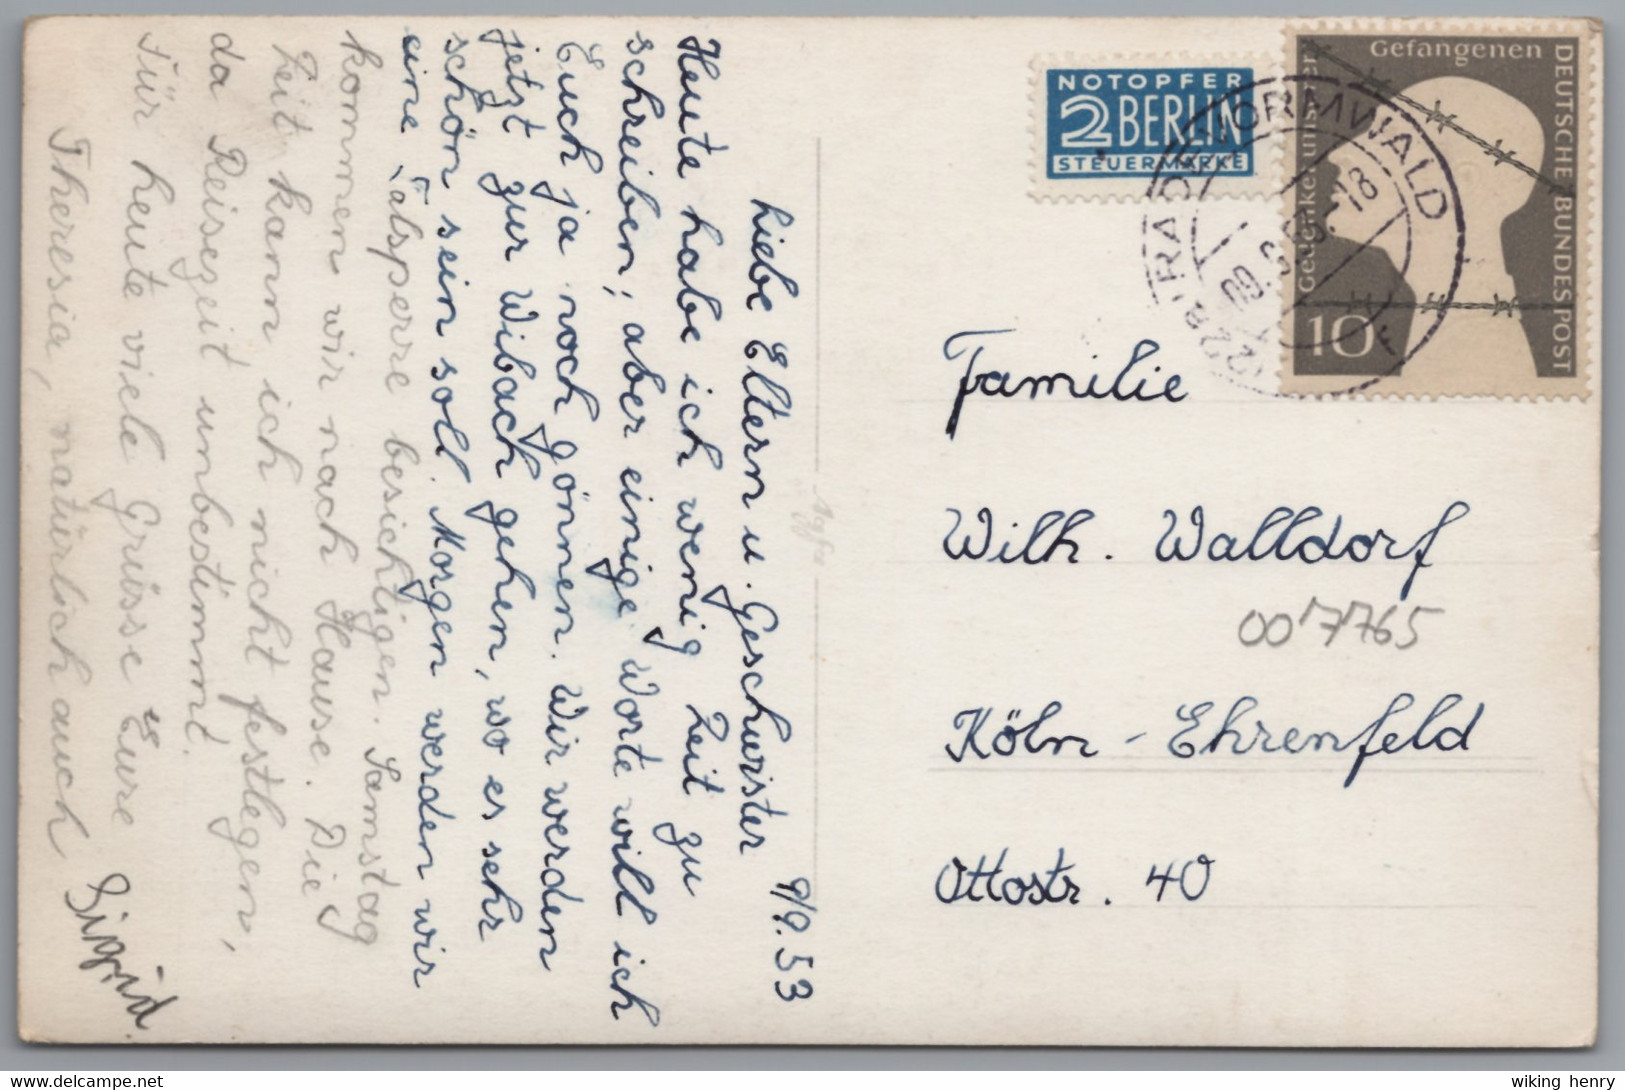 9/9.53
Liebe Eltern u. Geschwister
Heute habe ich wenig Zeit zu
schreiben; aber einige Worte will ich
Euch ja noch gönnen. Wir werden
jetzt zur Wibach gehen, wo es sehr
schön sein soll. Morgen werden wir
eine Talsperre besichtigen. Samstag
kommen wir nach Hause. Die
Zeit kann ich nicht festlegen,
da Reisezeit unbestimmt.
Für heute viele Grüsse Eure
Theresia, natürlich auch
NOTOPFER
2 BERLIN
STEUERMARKE
Gedenket unserer
Gefangenen
DEUTSCHE BUNDESPOST
10
RADEVORMWALD
09.9.53.-18
F
Familie
Wilh. Walldorf
007765
Köln-Ehrenfeld
Ottostr. 40
Agfa
wiking henry